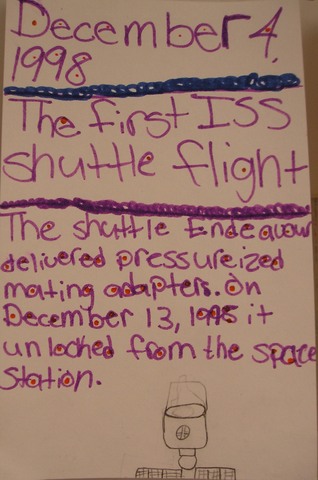 December 4,
1998
The first ISS
shuttle flight
The shuttle Endeavour
delivered pressureized
mating adapters. On
December 13, 1998 it
unlocked from the space
station.